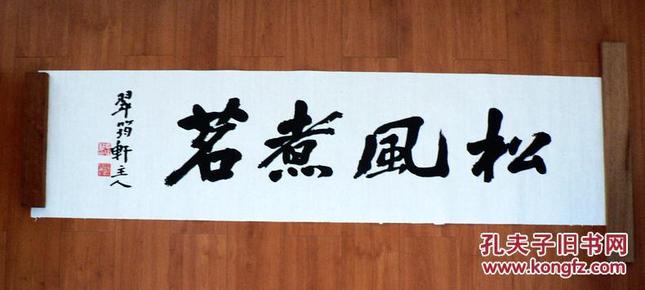 松風煮茗
翠筠軒主人
孔夫子旧书网
www.kongfz.com